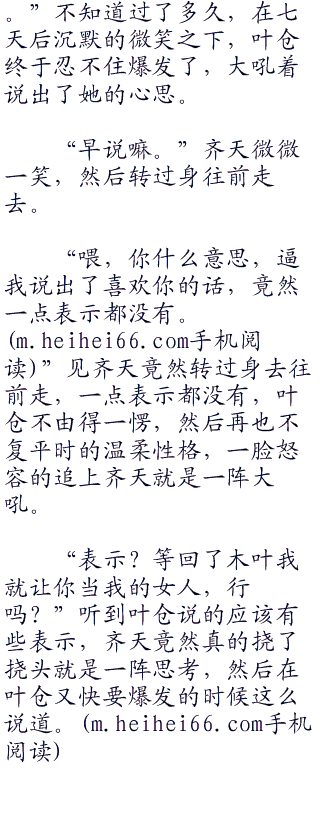 。”不知道过了多久，在七
天后沉默的微笑之下，叶仓
终于忍不住爆发了，大吼着
说出了她的心思。
“早说嘛。”齐天微微
一笑，然后转过身往前走
去。
“喂，你什么意思，逼
我说出了喜欢你的话，竟然
一点表示都没有。
(m.heihei66.com手机阅
读)”见齐天竟然转过身去往
前走，一点表示都没有，叶
仓不由得一愣，然后再也不
复平时的温柔性格，一脸怒
容的追上齐天就是一阵大
吼。
“表示？等回了木叶我
就让你当我的女人，行
吗？”听到叶仓说的应该有
些表示，齐天竟然真的挠了
挠头就是一阵思考，然后在
叶仓又快要爆发的时候这么
说道。(m.heihei66.com手机
阅读)